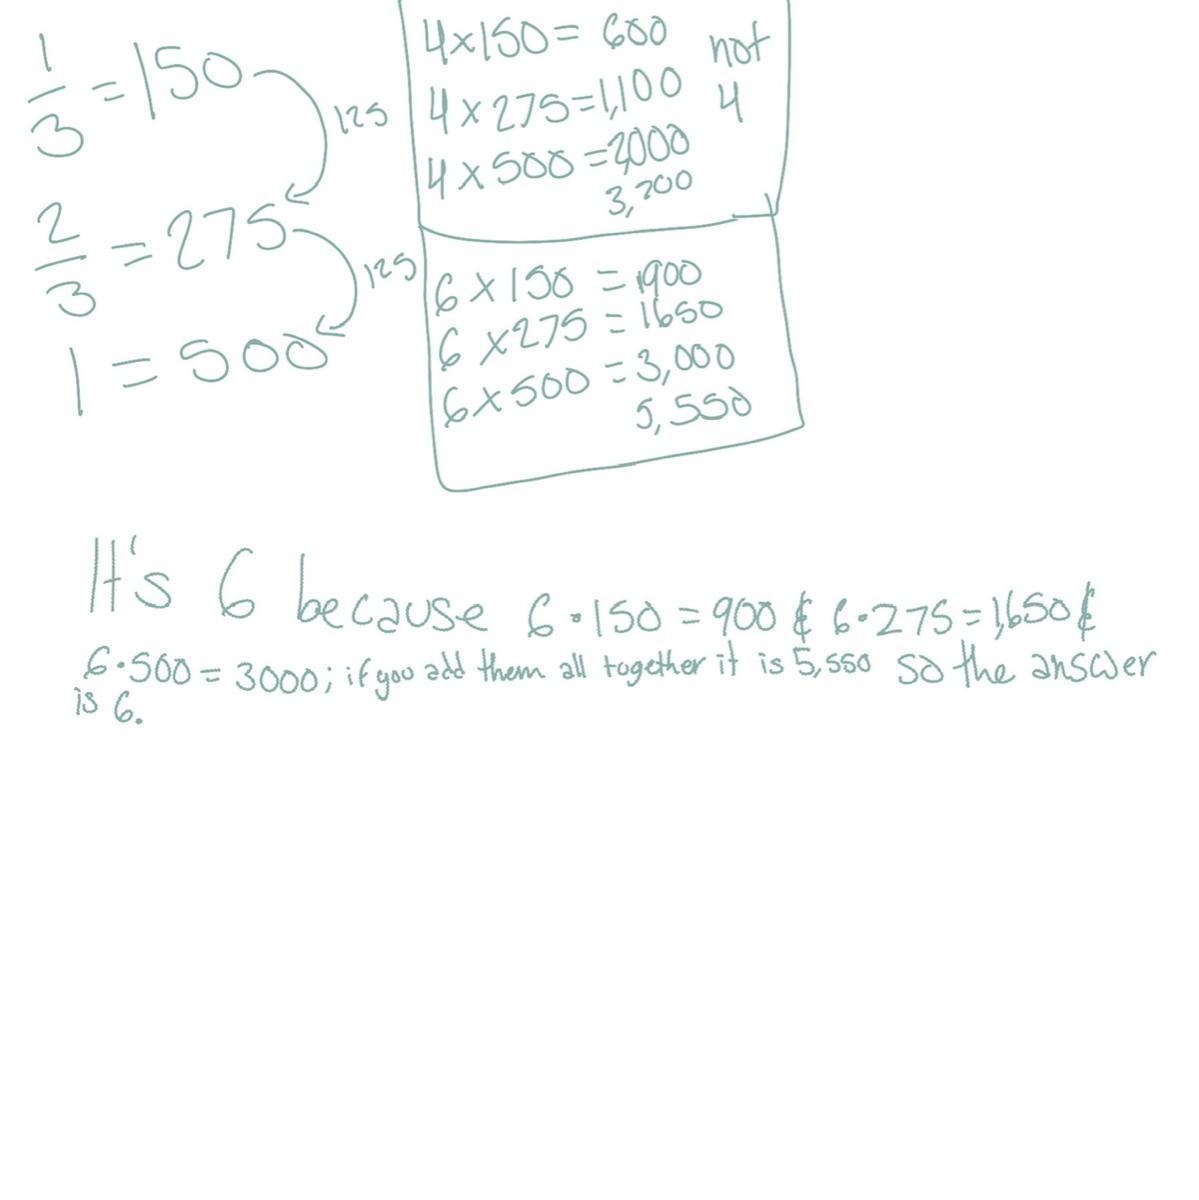 1/3 = 150
125
2/3 = 275
125
1 = 500
4×150= 600
not
4×275=1,100
4
4×500=2000
3,700
6×150 = 900
6×275 = 1650
6×500 = 3,000
5,550
It's 6 because 6·150=900 & 6·275=1,650 &
6·500=3000; if you add them all together it is 5,550 so the answer
is 6.